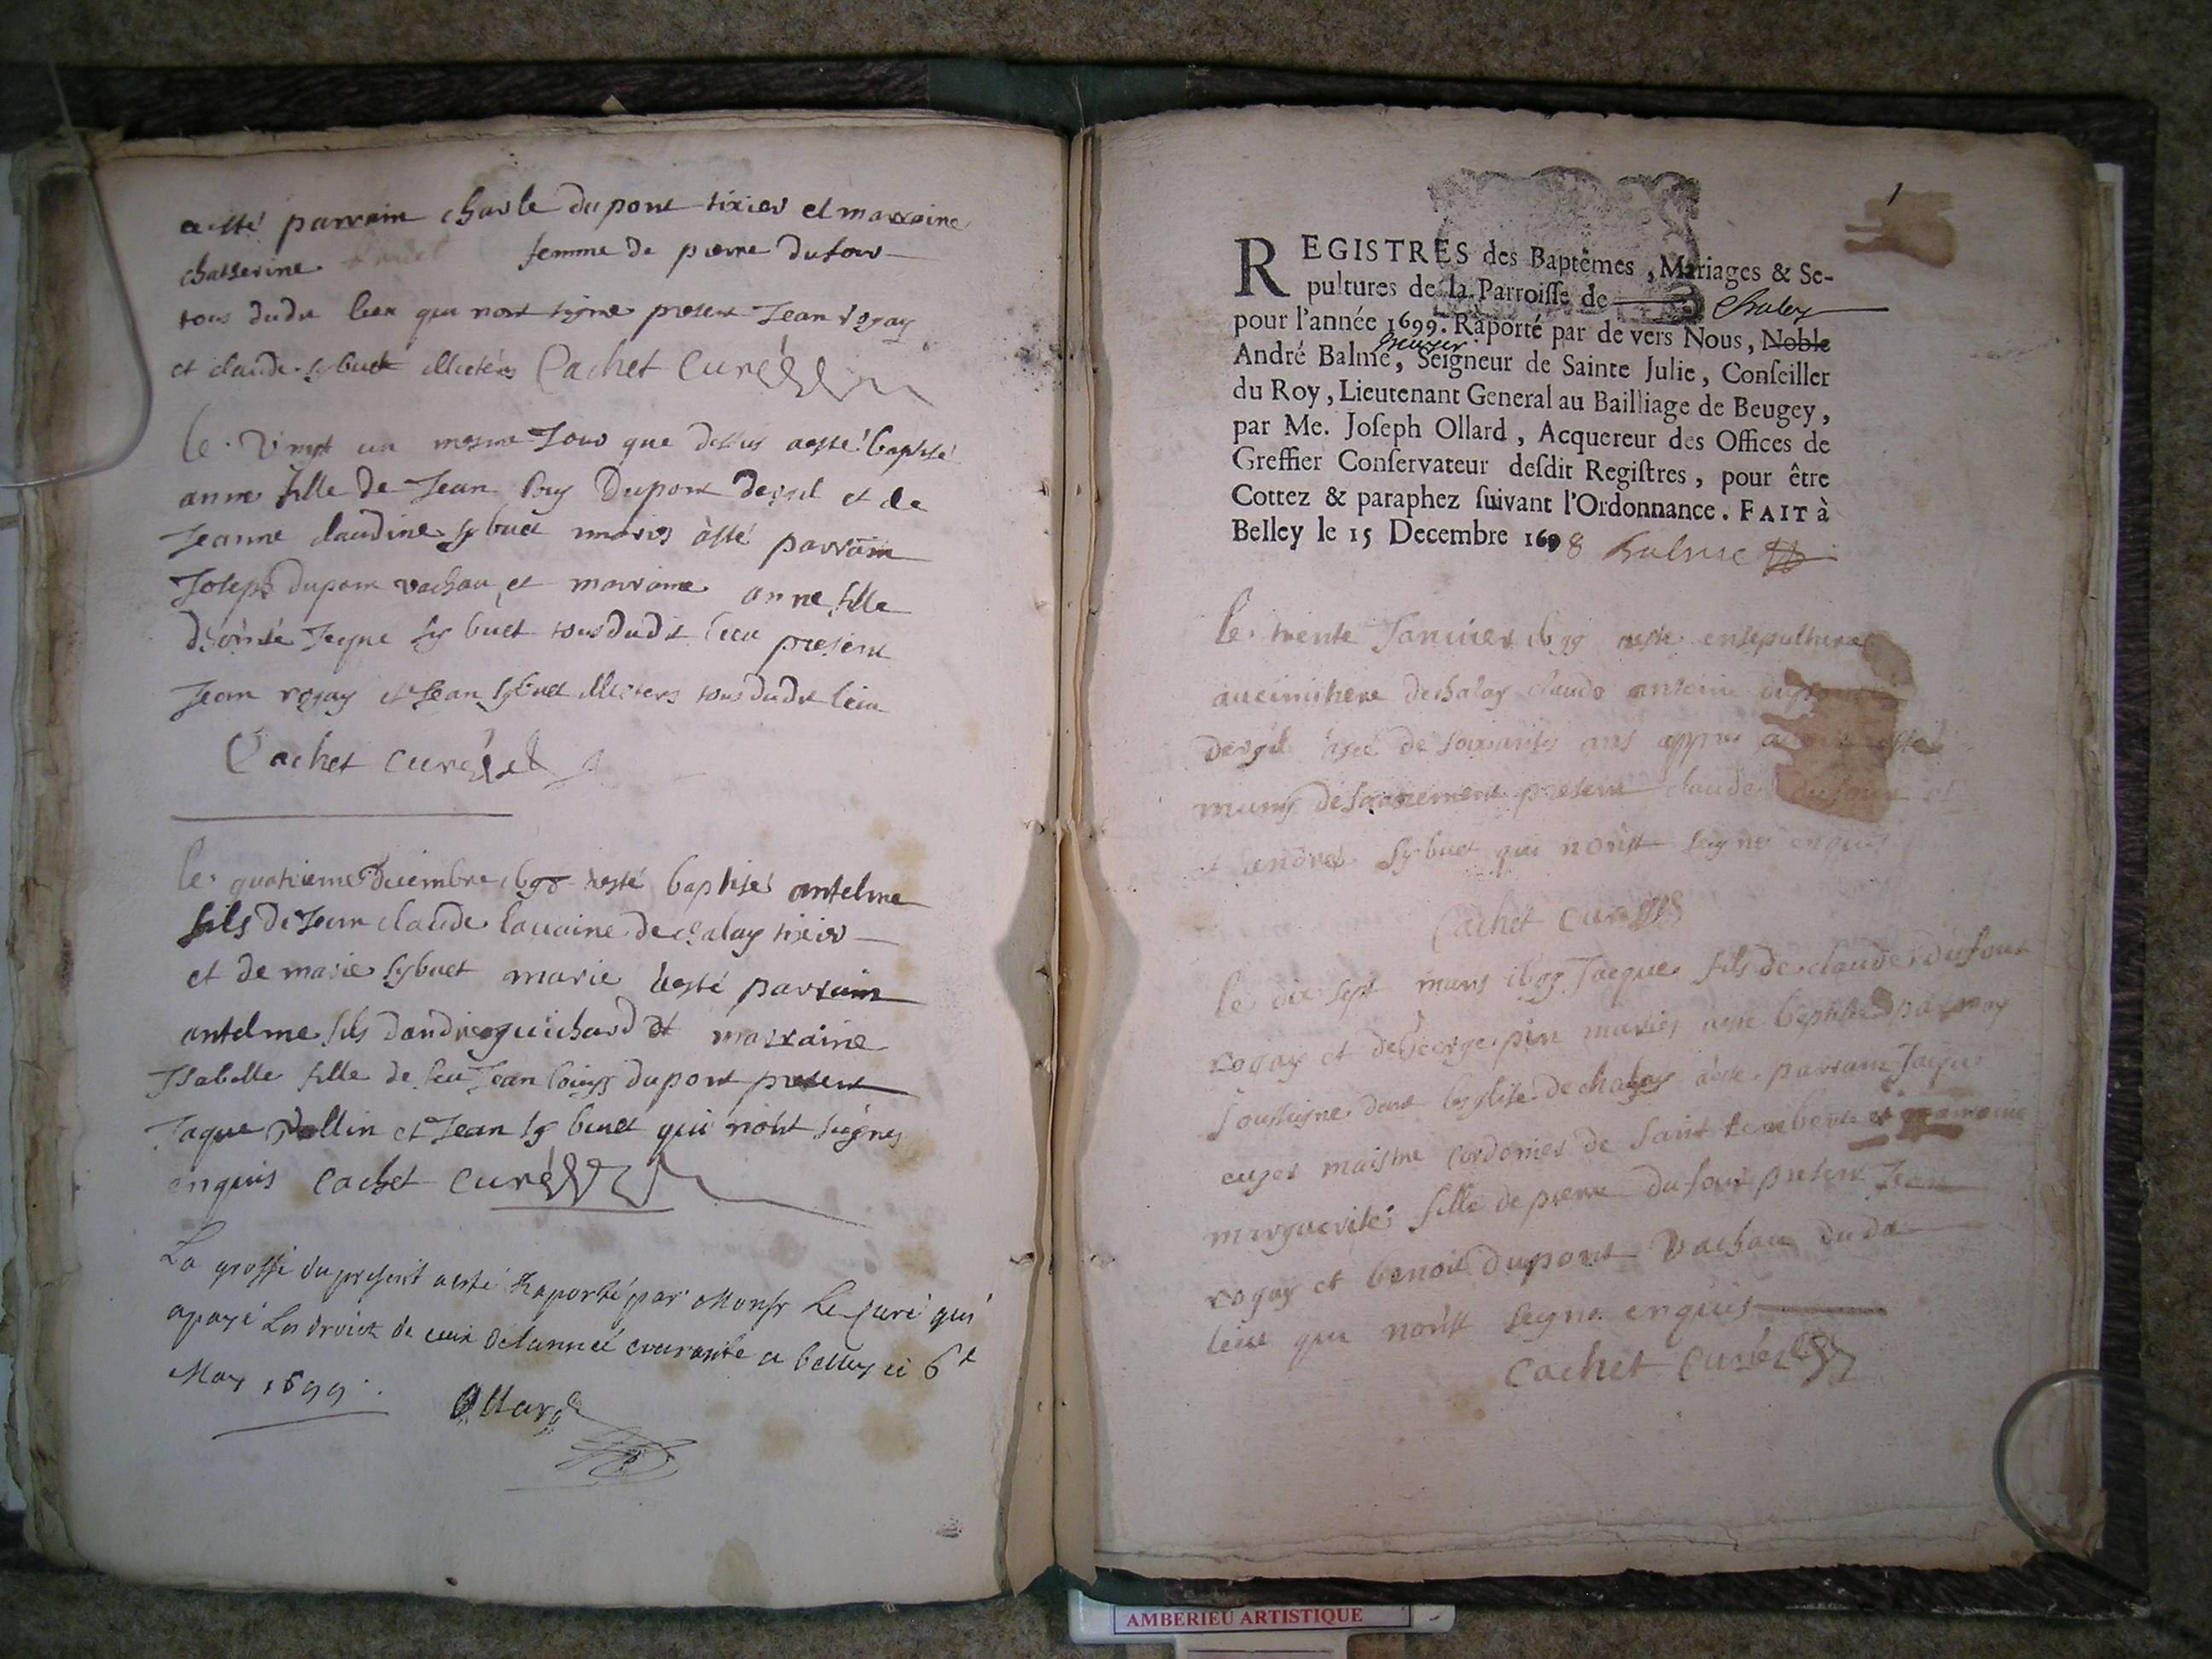 a esté parrain charle dupont tixier et marraine
chatherine femme de pierre dufour
tous dudit lieu qui nont signe present Jean rogay
et claude sybuet Cachet Curé
le vingt un mesme Jour que dessus a esté baptisé
anne fille de Jean Dupont et de
Jeanne claudine sybuet maries a esté parrain
Joseph dupont vachau et marraine anne fille
Jaque sybuet tous dudit lieu present
Jean rogay et Jean sybuet tous dudit lieu
Cachet curé
le quatrieme decembre 1698 a esté baptisé antelme
fils de Jean claude lauaine de chalay tixier
et de marie sybuet marie a esté parrain
antelme fils dandre guichard et marraine
Isabelle fille de feu Jean louys dupont present
Jaque vollin et Jean sybuet qui nont signes
enquis cachet curé
La grosse du present a esté Raporté par Monsr Le Curé qui
a payé Les droict de ceux de lannéé courante a belley ce 6e
May 1699.
Ollard
1
REGISTRES des Baptêmes, Mariages & Se-
pultures de la Parroisse de Chaley
pour l'année 1699. Raporté par de vers Nous, Noble
André Balme, Seigneur de Sainte Julie, Conseiller
du Roy, Lieutenant General au Bailliage de Beugey,
par Me. Joseph Ollard, Acquereur des Offices de
Greffier Conservateur desdit Registres, pour être
Cottez & paraphez suivant l'Ordonnance. FAIT à
Belley le 15 Decembre 1698 Balme
le trente Januier 1699 a esté ensepulturé
au cimithere de chalay claude antoine dupont
agé de soixante ans appres auoir esté
munis de sacrement present claude dufour
et andre sybuet qui nont signe enquis
Cachet curé
le dix sept mars 1699 Jacque fils de claude dufour
rogay et de George pin maries a esté baptisé par moy
soussigne dans leglise de chalay a esté parrain Jaque
maistre cordonier de saint rambert et maraine
marguerite fille de pierre dufour present Jean
rogay et benoit dupont vachau dudit
lieu qui nont signe enquis
Cachet Curé
AMBERIEU ARTISTIQUE